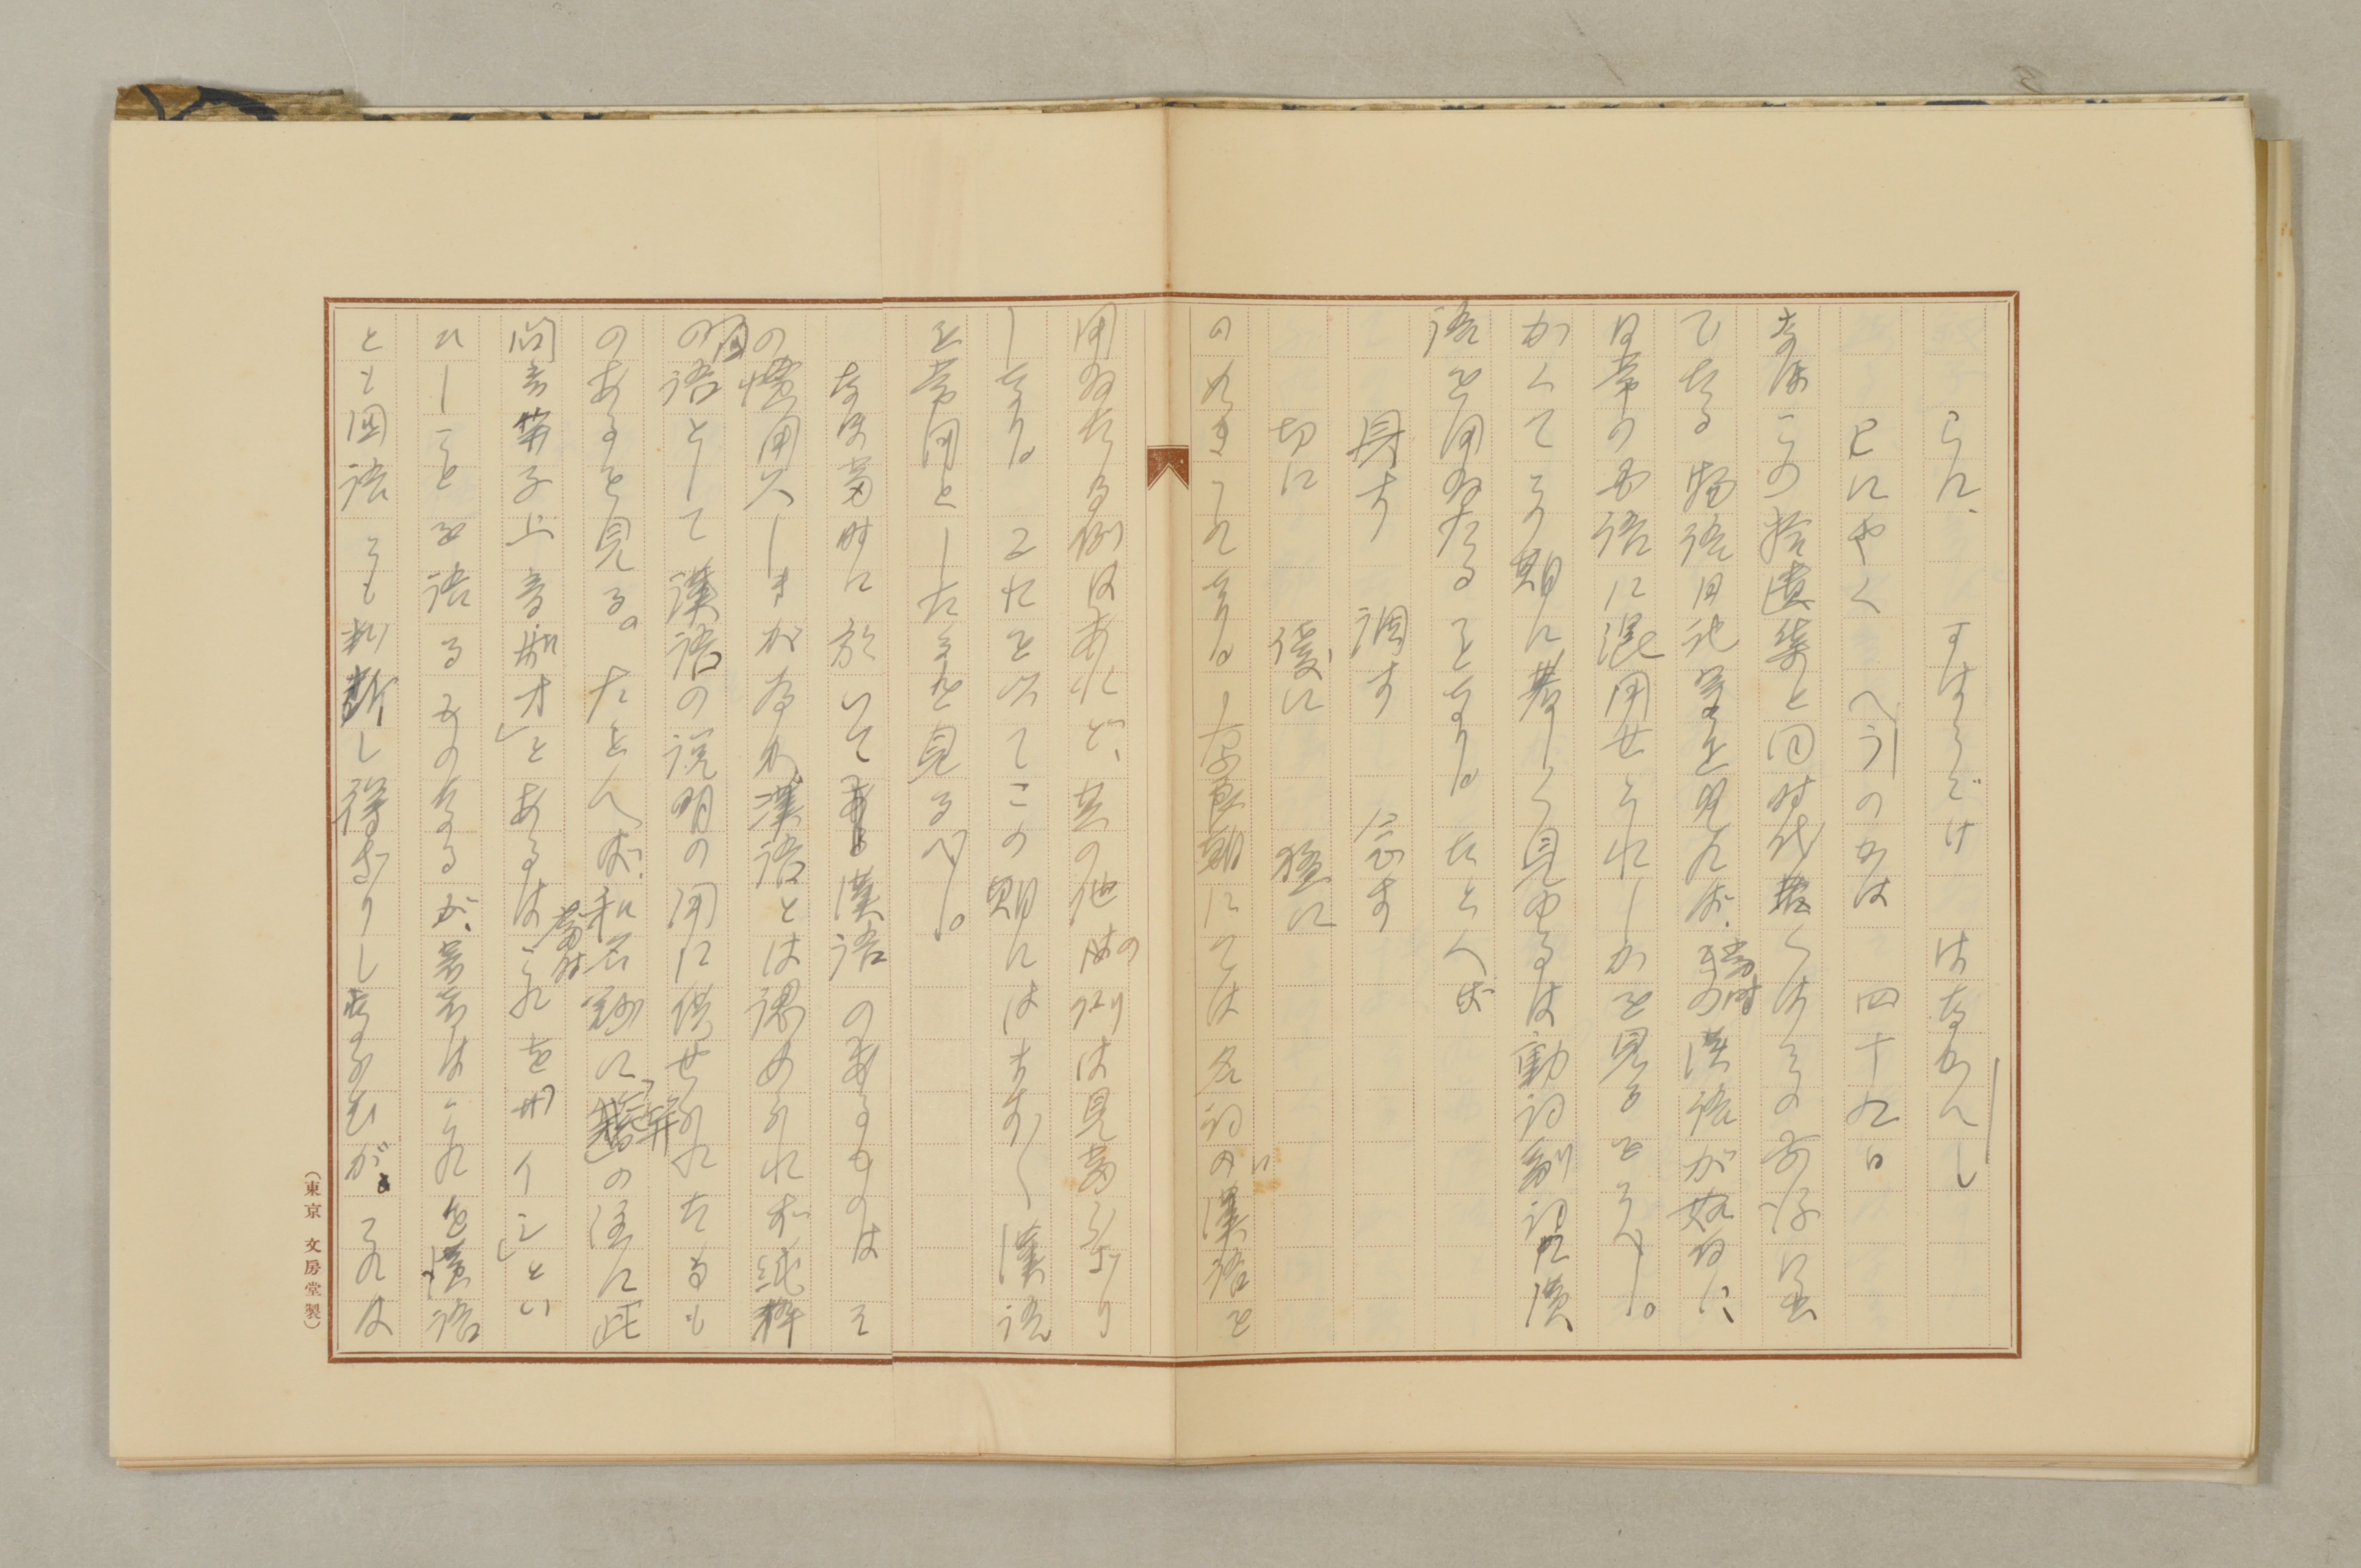 らん、 すはうごけ はなかんし
已にやく へうのかは 四十九日
なほこの拾遺集と同時代
でたる物語日記等を見れば、当時の漢語が如何に
日常の国語に混用せられしかを見るをうべし。
かくてこの期に著しく見ゆるは動詞副詞に漢
語を用ゐたることなり。たとへば
具す 調す 念ず
切に 優に 猛に
の如きこれなり。奈良朝にては名詞のに漢語を
用ゐたる例はあれど、其の他の例は見当らざり
しなり。これを以てこの期には漢語
を常用としたるを見るべし。
なほ当時に於いて漢語のあるものはそ
の慣用久しきが為か漢語とは認められず純粋
の国語として漢語の説明の用に供せられたるも
のあるを見る。たとへば、和名鈔に の注に此
間音 上音 とあるは当時これを とい
ひしことを語るものなるが、 はこれを漢語
とも国語とも判断し得ざりしなるが、これは
(東京 文房堂製)